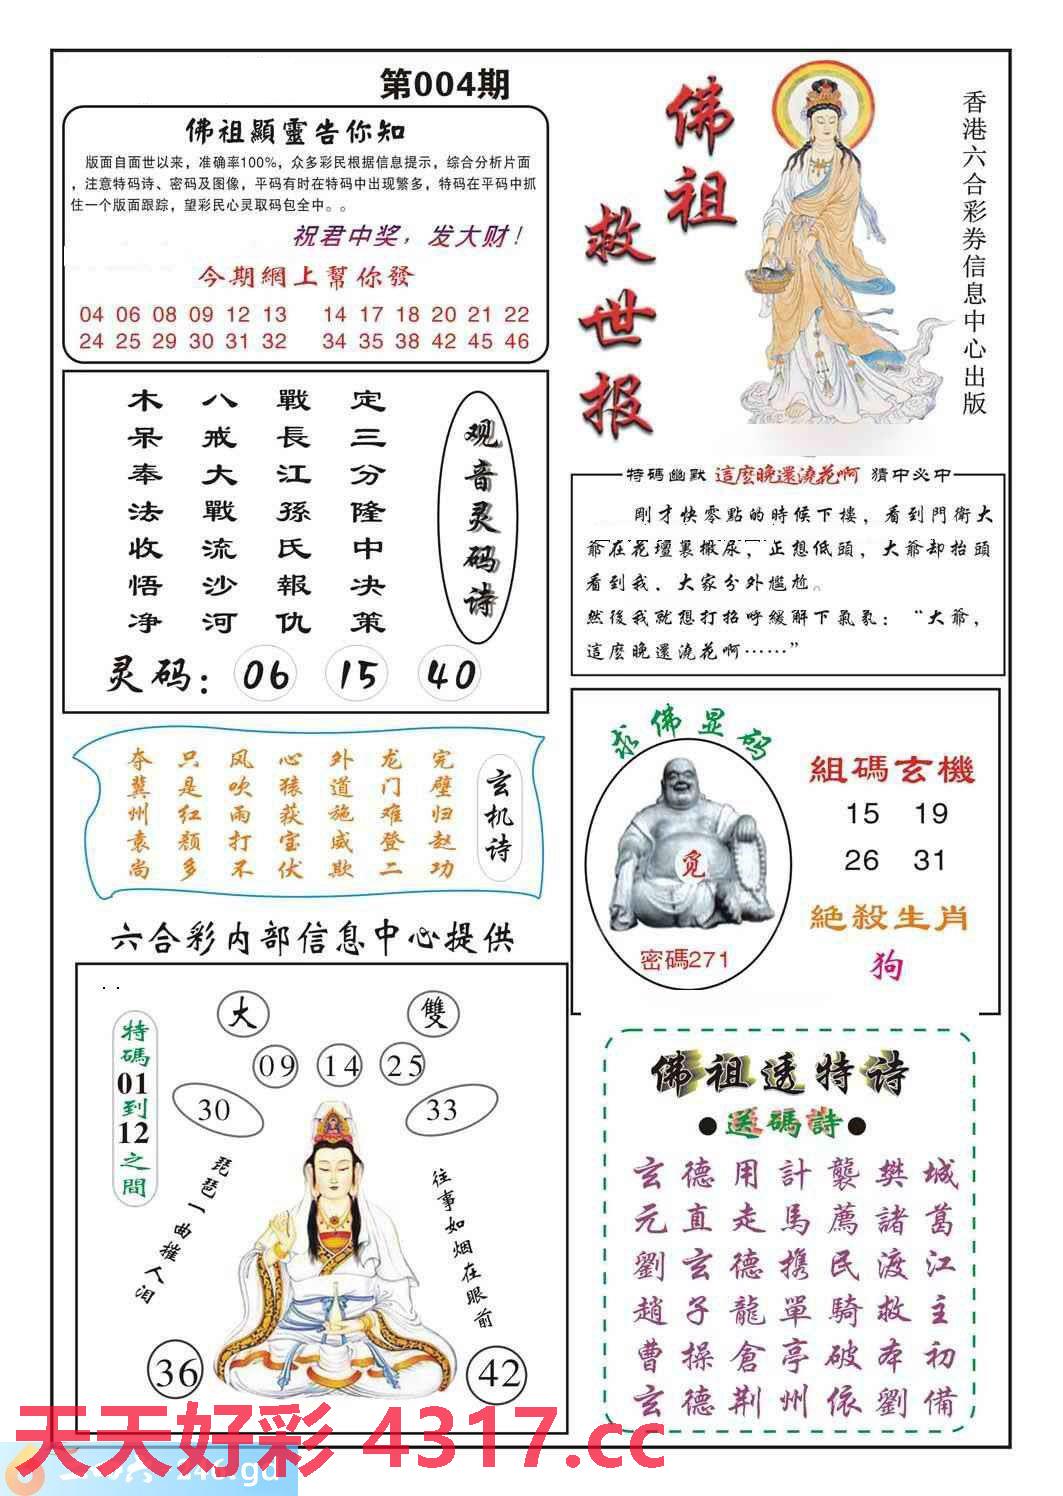 第004期
佛祖顯靈告你知
版面自面世以来，准确率100%，众多彩民根据信息提示，综合分析片面
，注意特码诗、密码及图像，平码有时在特码中出现繁多，特码在平码中抓
住一个版面跟踪，望彩民心灵取码包全中。。
祝君中奖，发大财！
今期網上幫你發
04 06 08 09 12 13 14 17 18 20 21 22
24 25 29 30 31 32 34 35 38 42 45 46
佛祖
救世报
香港六合彩券信息中心出版
观音灵码诗
定三分隆中决策
戰長江孫氏報仇
八戒大戰流沙河
木呆奉法收悟净
灵码：06 15 40
特碼幽默 這麽晚還澆花啊 猜中必中
剛才快零點的時候下樓，看到門衛大
爺在花壇裏撒尿，正想低頭，大爺却抬頭
看到我，大家分外尴尬。
然後我就想打招呼緩解下氣氛：“大爺，
這麽晚還澆花啊……”
玄机诗
完璧归赵功
龙门难登二
外道施威欺
心猿获宝伏
风吹雨打不
只是红颜多
夺冀州袁尚
求佛显码
觅
密碼271
組碼玄機
15 19
26 31
絶殺生肖
狗
六合彩内部信息中心提供
特碼01到12之間
大
雙
09 14 25
30
33
琵琶一曲摧人泪
往事如烟在眼前
36
42
佛祖透特诗
●送碼詩●
玄德用計襲樊城
元直走馬薦諸葛
劉玄德携民渡江
趙子龍單騎救主
曹操倉亭破本初
玄德荆州依劉備
天天好彩 4317.cc
246.gd